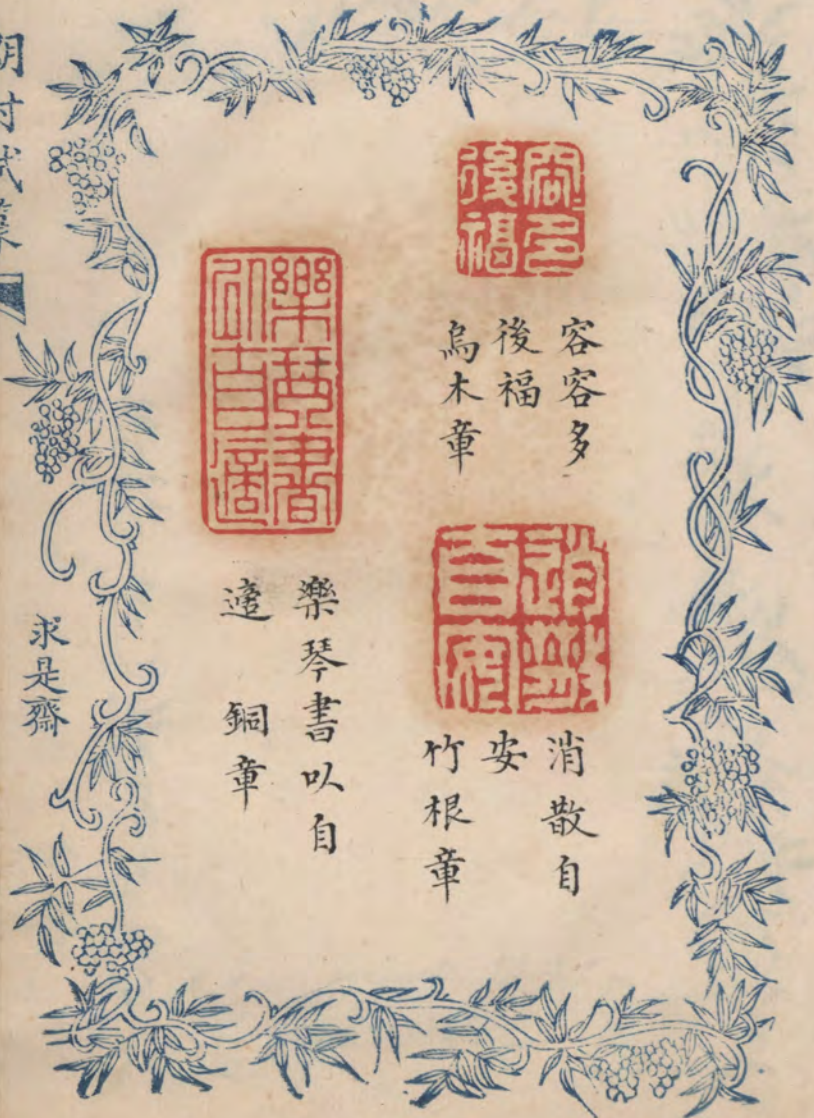 容〻多
後福
容容多
後福
烏木章
消散
自安
消散自
安
竹根章
樂琴書
以自適
樂琴書以自
適 銅章
求是齋